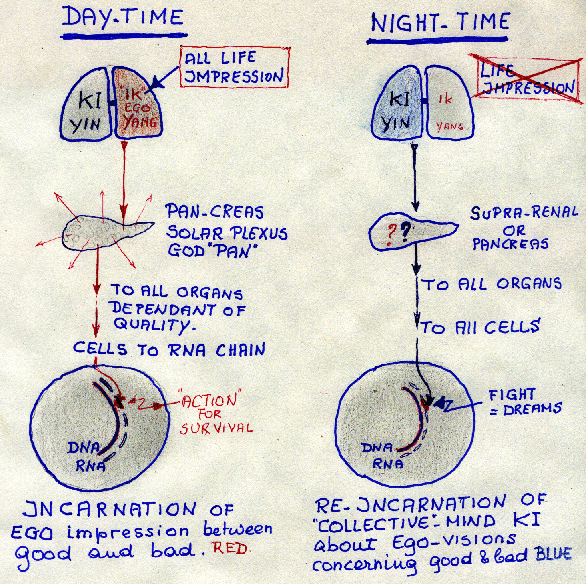 DAY-TIME
KI
YIN
"IK"
EGO
YANG
ALL LIFE
IMPRESSION
PAN-CREAS
SOLAR PLEXUS
GOD "PAN"
TO ALL ORGANS
DEPENDANT OF
QUALITY.
CELLS TO RNA CHAIN
"ACTION"
FOR
SURVIVAL
DNA
RNA
INCARNATION OF
EGO impression between
good and bad. RED.
NIGHT-TIME
KI
YIN
IK
YANG
LIFE
IMPRESSION
??
SUPRA-RENAL
OR
PANCREAS
TO ALL ORGANS
TO All CELLS
FIGHT
= DREAMS
DNA
RNA
RE-INCARNATION OF
"COLLECTIVE"-MIND KI
about Ego-visions
concerning good & bad BLUE